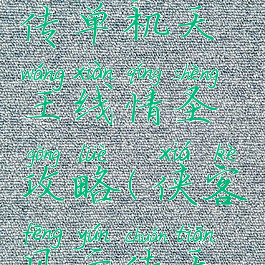 传单机天
wáng xiàn qíng shèng
王线情圣
gōng lüè xiá kè
攻略(侠客
fēng yún chuán tiān